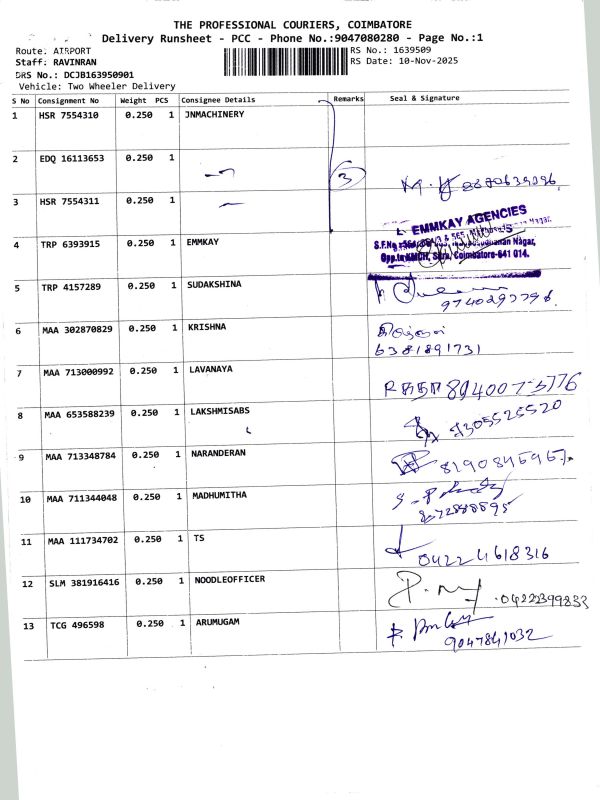 THE PROFESSIONAL COURIERS, COIMBATORE
Delivery Runsheet - PCC - Phone No.:9047080280 - Page No.:1
Route: AIRPORT
RS No.: 1639509
Staff: RAVINRAN
RS Date: 10-Nov-2025
DRS No.: DCJB163950901
Vehicle: Two Wheeler Delivery
S No Consignment No Weight PCS Consignee Details Remarks Seal & Signature
1 HSR 7554310 0.250 1 JNMACHINERY
2 EDQ 16113653 0.250 1
3
3 HSR 7554311 0.250 1
4 TRP 6393915 0.250 1 EMMKAY
EMMKAY AGENCIES
Opp.to KMCH, Coimbatore-641 014.
5 TRP 4157289 0.250 1 SUDAKSHINA
9740297796
6 MAA 302870829 0.250 1 KRISHNA
6381891731
7 MAA 713000992 0.250 1 LAVANAYA
8 MAA 653588239 0.250 1 LAKSHMISABS
9305525520
9 MAA 713348784 0.250 1 NARANDERAN
10 MAA 711344048 0.250 1 MADHUMITHA
11 MAA 111734702 0.250 1 TS
04224618316
12 SLM 381916416 0.250 1 NOODLEOFFICER
04222399833
13 TCG 496598 0.250 1 ARUMUGAM
9047841032